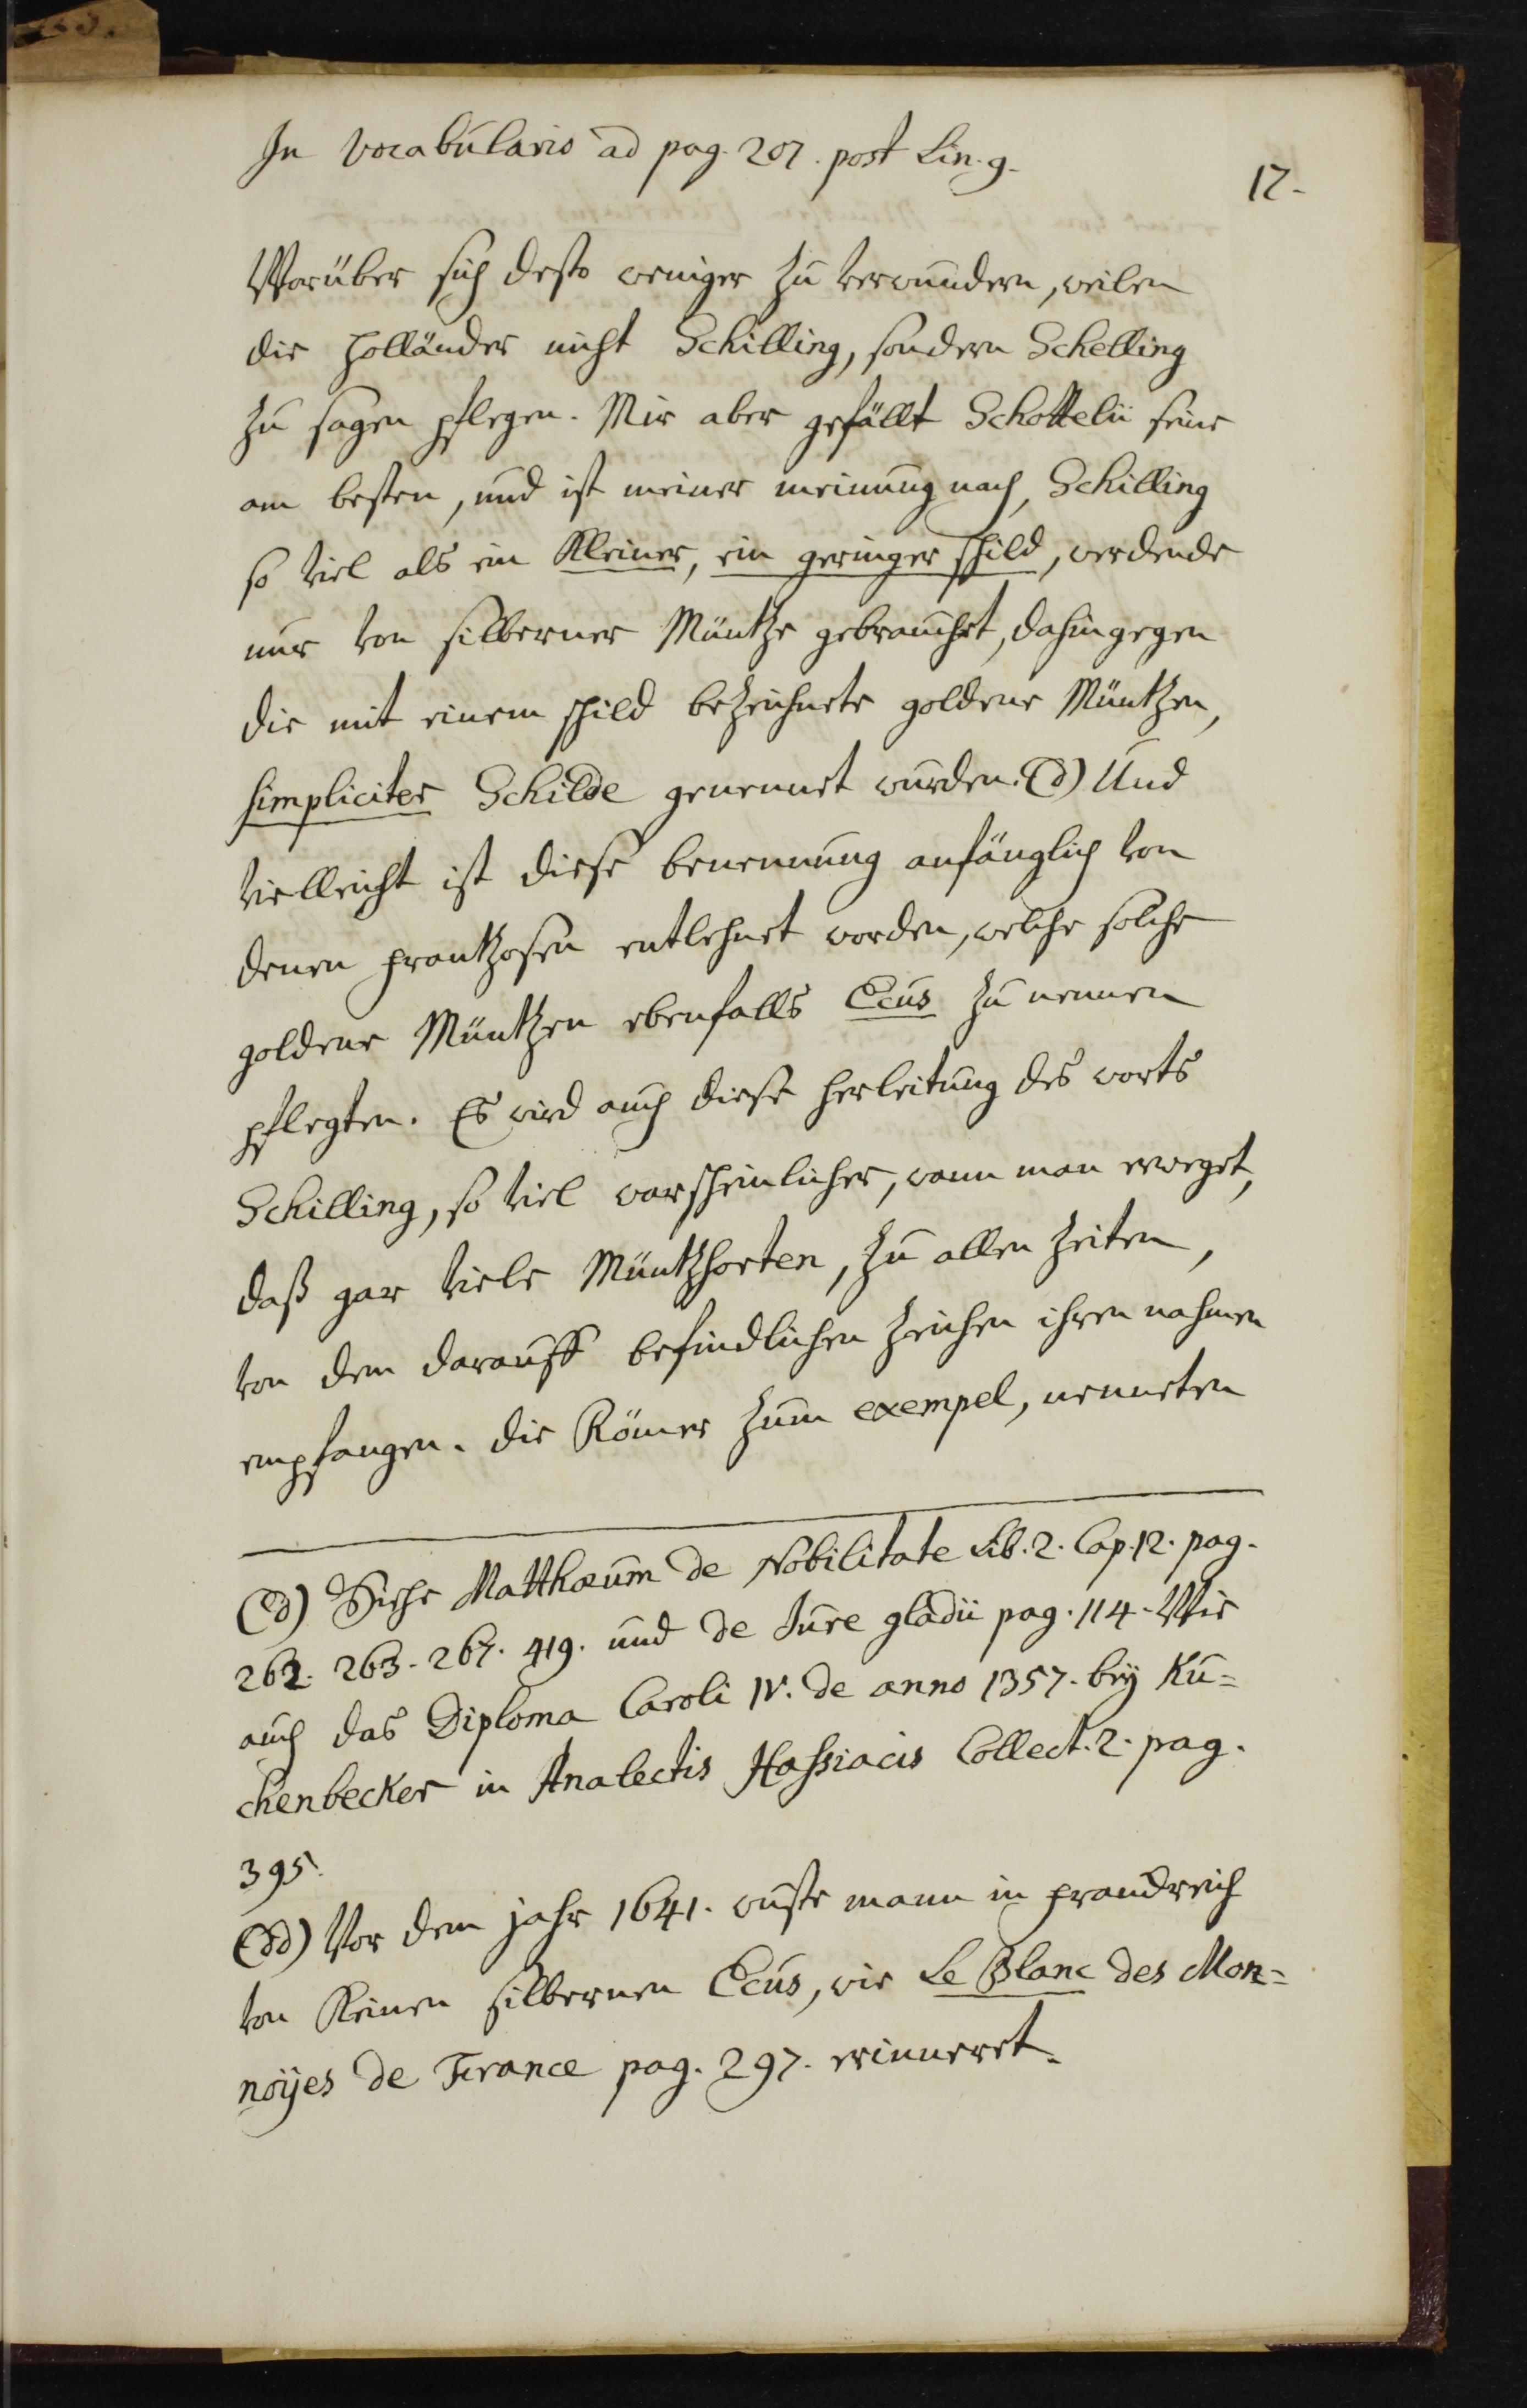 In Vocabulario ad pag. 207. post Lin. 9.
17.
Worüber sich desto weniger zu verwundern, weilen
die Holländer nicht Schilling, sondern Schelling
zu sagen pflegen. Mir aber gefällt Schottelii seine
am besten, und ist meiner meinung nach, Schilling
so viel als ein Kleiner, ein geringer schild, werdende
nur von silberner Müntze gebrauchet, dahingegen
die mit einem schild bezeichnete goldene Müntzen,
simpliciter Schilde genennet wurden. (d) Und
vielleicht ist diese benennung anfänglich von
denen frantzosen entlehnet worden, welche solche
goldene Müntzen ebenfalls Ecus zu nennen
pflegten. Es wird auch diese herleitung des worts
Schilling, so viel warscheinlicher, wann man erweget,
daß gar viele Müntzsorten, zu allen Zeiten,
von dem darauff befindlichen Zeichen ihren nahmen
empfangen. Die Römer zum exempel, nenneten
(d) Siehe Matthæum de Nobilitate Lib. 2. Cap. 12. pag.
262. 263. 267. 419. und de Jure gladii pag. 114. Wie
auch das Diploma Caroli IV. de anno 1357. beÿ Ku=
chenbecker in Analectis Hassiacis Collect. 2. pag.
395.
(dd) Vor dem jahr 1641. wuste mann in franckreich
von Keinen silbernen Ecus, wie Le Blanc des Mon=
noÿes de France pag. 297. erinneret.